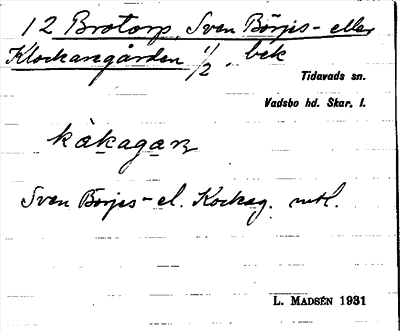 12 Brotorp, Sven Börjes- eller
Klockaregården 1/2, bek
Tidavads sn.
Vadsbo hd. Skar. l.
kåkagaɳ
Sven Börjes- el. Kockag. mtl.
L. MADSÉN 1931